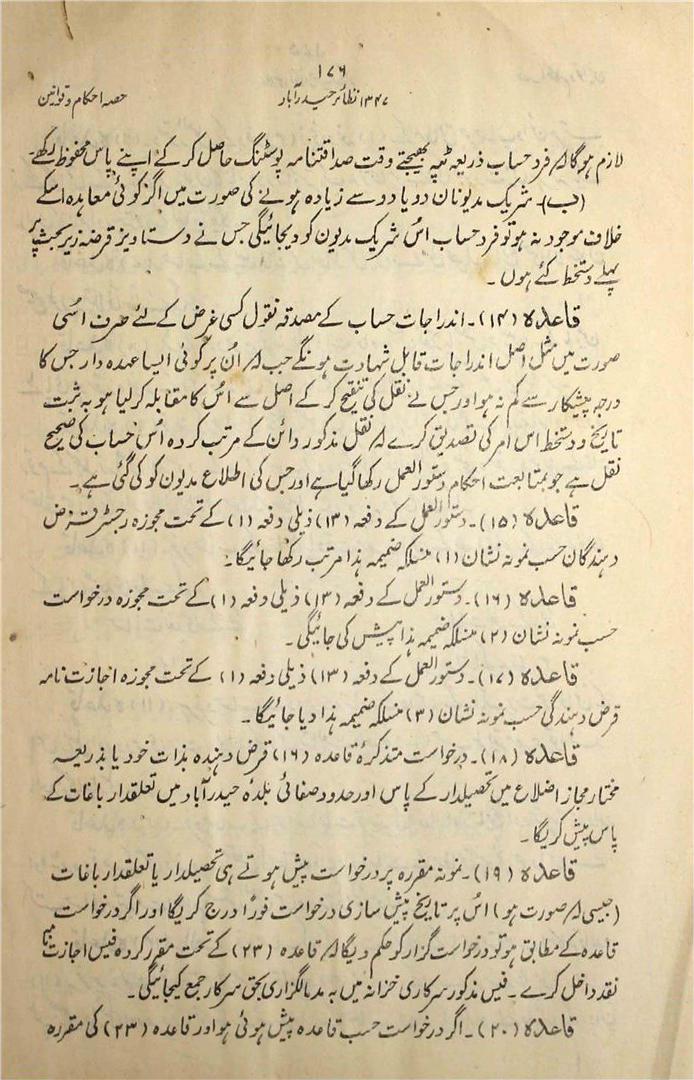 ۱۷۶
۱۳۴۷ نظائر حیدرآباد
حصہ احکام و قوانین
لازم ہوگا کہ فرد حساب ذریعہ ٹپہ بھیجتے وقت صداقتنامہ پوسٹنگ حاصل کرکے اپنے پاس محفوظ رکھے۔
(ب)۔ شریک مدیونان دو یا دو سے زیادہ ہونے کی صورت میں اگر کوئی معاہدہ اسکے
خلاف موجود نہ ہو تو فرد حساب اُس شریک مدیون کو دیجائیگی جس نے دستاویز قرضہ زیر بحث پر
پہلے دستخط کئے ہوں۔
قاعدہ (۱۴)۔ اندراجات حساب کے مصدقہ نقول کسی غرض کے لئے صرف اُسی
صورت میں مثل اصل اندراجات قابل شہادت ہونگے جب کہ اُن پر کوئی ایسا عہدہ دار جس کا
درجہ پیشکار سے کم نہ ہو اور جس نے نقل کی تنقیح کرکے اصل سے اُس کا مقابلہ کرلیا ہو بہ ثبت
تاریخ و دستخط اس امر کی تصدیق کرے کہ نقل مذکور دائن کے مرتب کردہ اُس حساب کی صحیح
نقل ہے جو بمتابعت احکام دستور العمل رکھا گیا ہے اور جس کی اطلاع مدیون کو کی گئی ہے۔
قاعدہ (۱۵)۔ دستور العمل کے دفعہ (۱۳) ذیلی دفعہ (۱) کے تحت مجوزہ رجسٹر قرض
دہندگان حسب نمونہ نشان (۱) منسلکہ ضمیمہ ہذا مرتب رکھا جائیگا۔
قاعدہ (۱۶)۔ دستور العمل کے دفعہ (۱۳) ذیلی دفعہ (۱) کے تحت مجوزہ درخواست
حسب نمونہ نشان (۲) منسلکہ ضمیمہ ہذا پیش کی جائیگی۔
قاعدہ (۱۷)۔ دستور العمل کے دفعہ (۱۳) ذیلی دفعہ (۱) کے تحت مجوزہ اجازت نامہ
قرض دہندگی حسب نمونہ نشان (۳) منسلکہ ضمیمہ ہذا دیا جائیگا۔
قاعدہ (۱۸)۔ درخواست متذکرۂ قاعدہ (۱۶) قرض دہندہ بذات خود یا بذریعہ
مختار مجاز اضلاع میں تحصیلدار کے پاس اور حدود صفائی بلدۂ حیدرآباد میں تعلقدار باغات کے
پاس پیش کریگا۔
قاعدہ (۱۹)۔ نمونہ مقررہ پر درخواست پیش ہوتے ہی تحصیلدار یا تعلقدار باغات
(جیسی کہ صورت ہو) اُس پر تاریخ پیش سازی درخواست فوراً درج کریگا اور اگر درخواست
قاعدہ کے مطابق ہو تو درخواست گزار کو حکم دیگا کہ قاعدہ (۲۳) کے تحت مقرر کردہ فیس اجازت نامہ
نقد داخل کرے۔ فیس مذکور سرکاری خزانہ میں بہ مد مالگزاری بحق سرکار جمع کیجائیگی۔
قاعدہ (۲۰)۔ اگر درخواست حسب قاعدہ پیش ہوئی ہو اور قاعدہ (۲۳) کی مقررہ